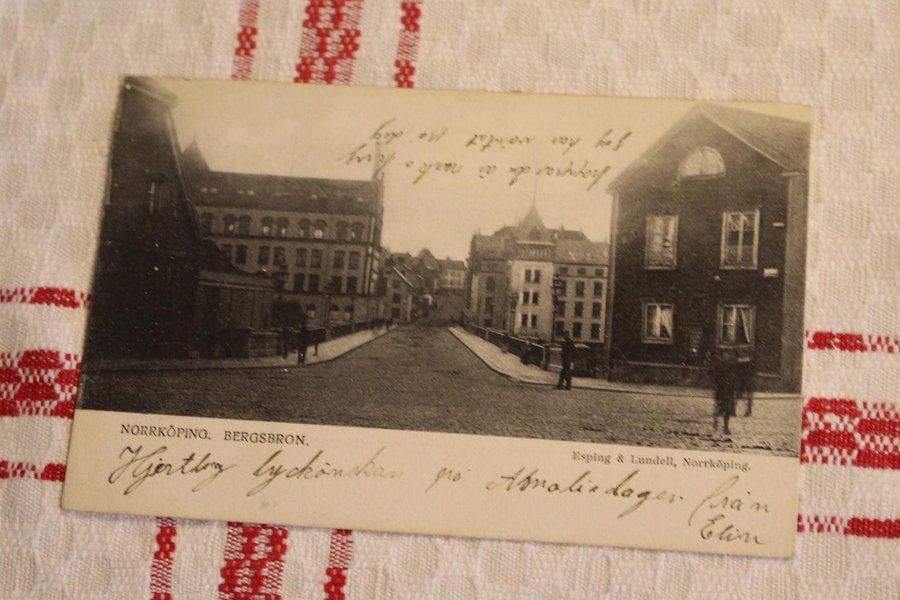 hoppas du är rask o kry
jag har väntat på dig
NORRKÖPING. BERGSBRON.
Esping & Lundell, Norrköping.
Hjertlig lyckönskan på Amaliadagen från
Elin